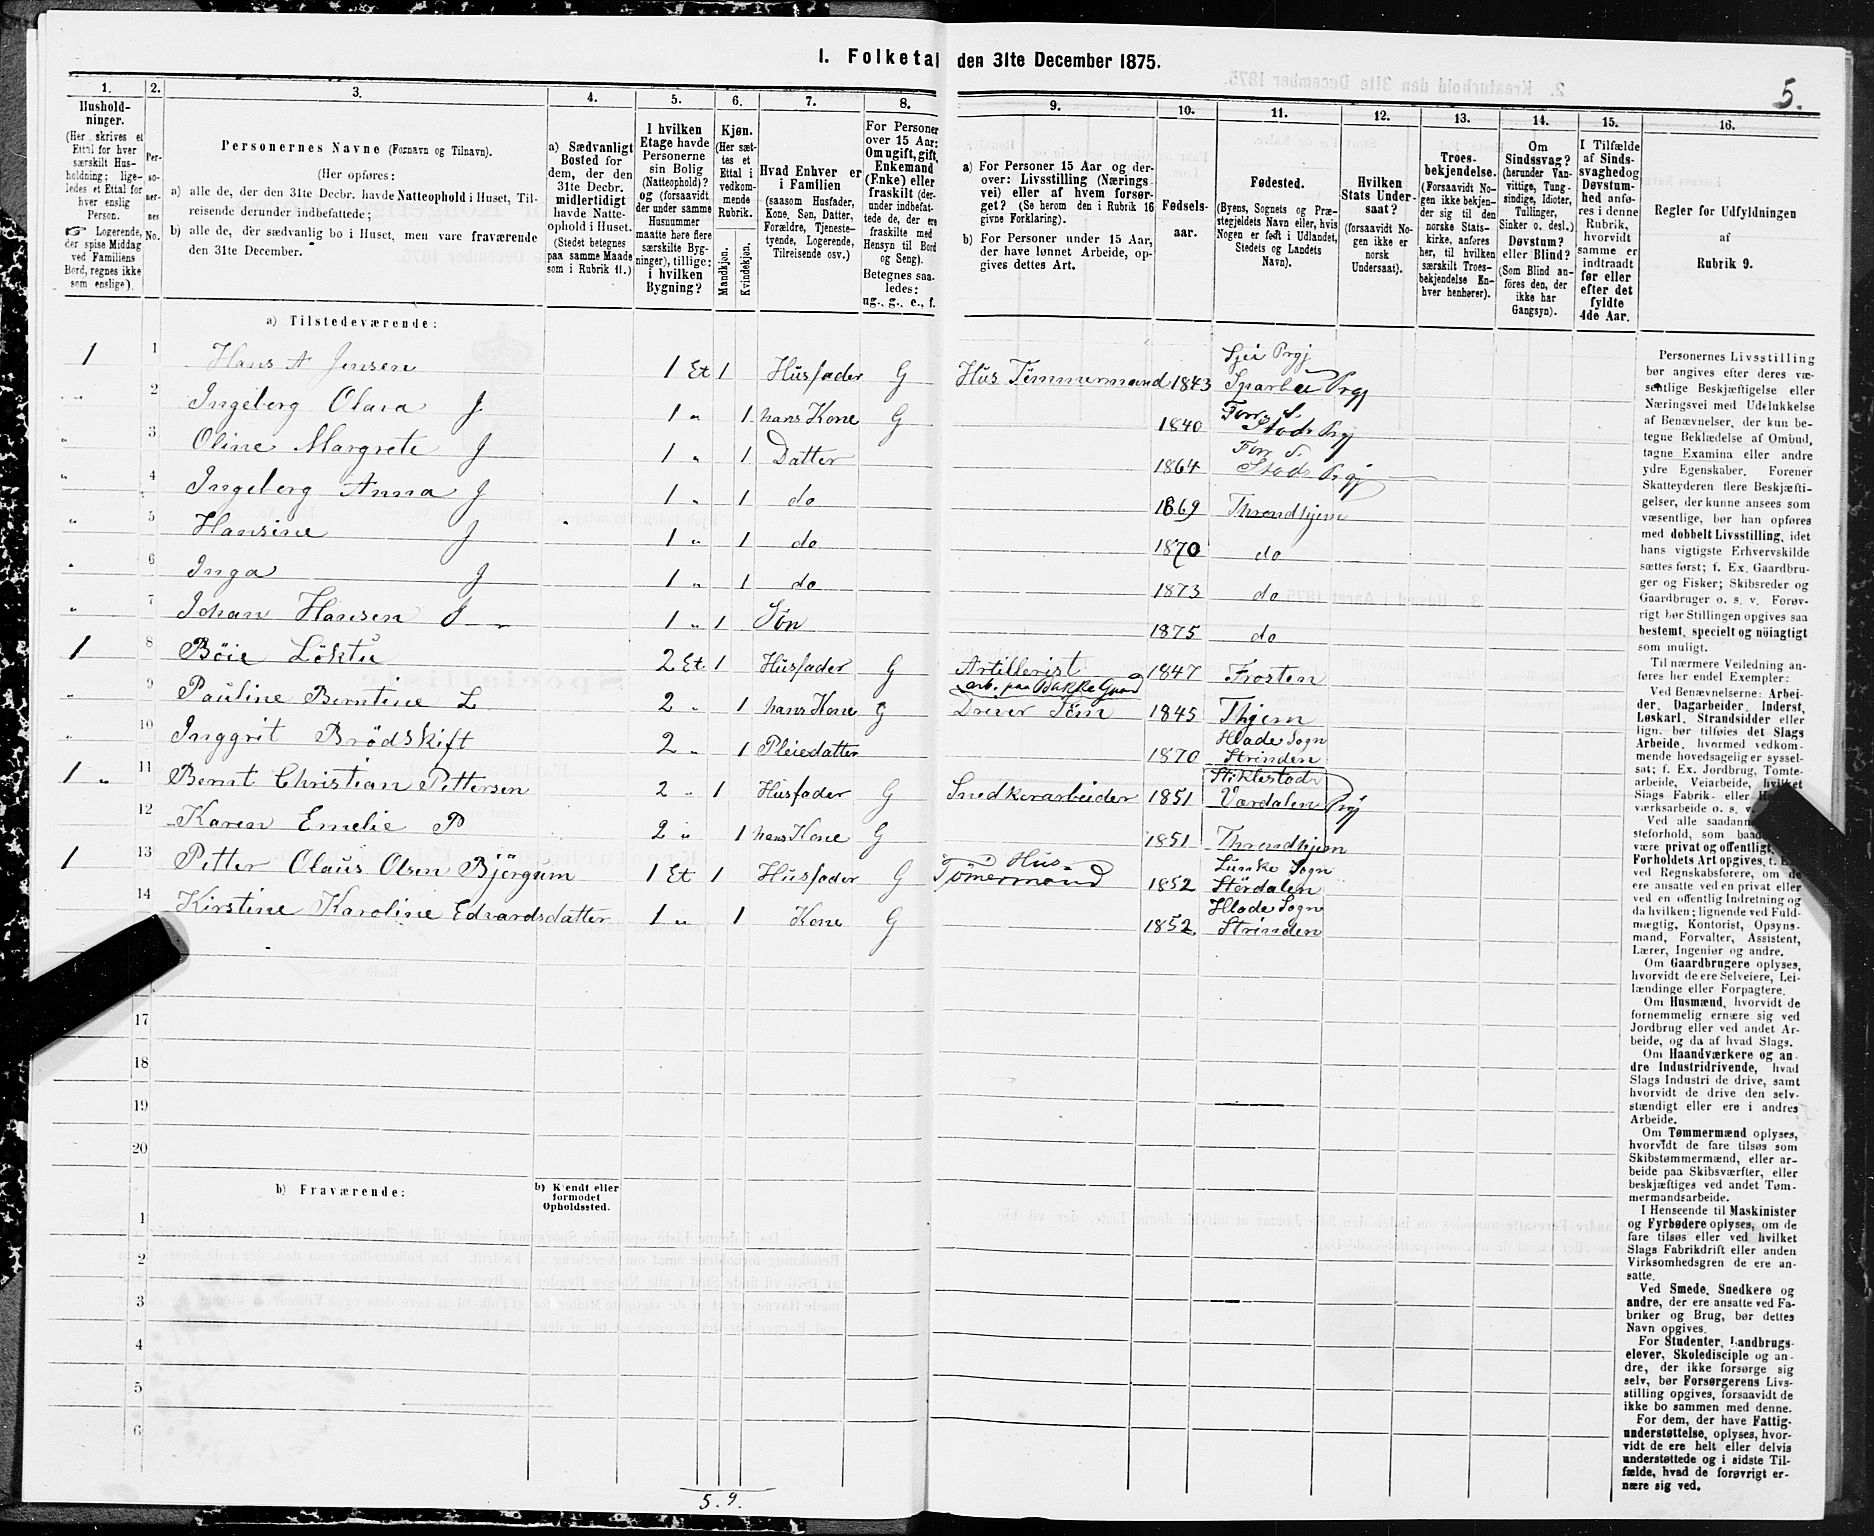 1. Folketal den 31te December 1875.
5.
1. 2. 3. 4. 5. 6. 7. 8. 9. 10. 11. 12. 13. 14. 15. 16.
Hushold-
ninger.
(Her skrives et
Ettal for hver
særskilt Hus-
holdning; lige-
ledes et Ettal for
hver enslig
Person.
☞ Logerende,
der spise Middag
ved Familiens
Bord, regnes ikke
som enslige).
Per-
so-
ner-
nes
No.
Personernes Navne (Fornavn og Tilnavn).
(Her opføres:
a) alle de, der den 31te Decbr. havde Natteophold i Huset, Til-
reisende derunder indbefattede;
b) alle de, der sædvanlig bo i Huset, men vare fraværende
den 31te December.
a) Sædvanligt
Bosted for
dem, der den
31te Decbr.
midlertidigt
havde Natte-
ophold i Huset.
(Stedet betegnes
paa samme Maade
som i Rubrik 11.)
I hvilken
Etage havde
Personerne
sin Bolig
(Natteophold)?
og (forsaavidt
der under samme
Husnummer
maatte høre flere
særskilte Byg-
ninger), tillige:
i hvilken
Bygning?
Kjøn.
(Her sæt-
tes et
Ettal i
vedkom-
mende
Rubrik.
Mandkjøn.
Kvindekjøn.
Hvad Enhver er
i Familien
(saasom Husfader,
Kone, Søn, Datter,
Forældre, Tjeneste-
tyende, Logerende,
Tilreisende osv.)
For Personer
over 15 Aar:
Om ugift, gift,
Enkemand
(Enke) eller
fraskilt (der-
under indbefat-
tede de, der ere
fraskilte med
Hensyn til Bord
og Seng).
Betegnes saa-
ledes:
ug., g., e., f.
a) For Personer 15 Aar og der-
over: Livsstilling (Nærings-
vei) eller af hvem forsør-
get? (Se herom den i Rubrik 16
givne Forklaring).
b) For Personer under 15 Aar,
der have lønnet Arbeide, op-
gives dettes Art.
Fødsels-
aar.
Fødested.
(Byens, Sognets og Præ-
stegjeldets Navn eller, hvis
Nogen er født i Udlandet,
Stedets og Landets
Navn).
Hvilken
Stats Under-
saat?
(forsaavidt No-
gen ikke er
norsk
Undersaat).
Troes-
bekjendelse.
(Forsaavidt No-
gen ikke bekjen-
der sig til den
norske Stats-
kirke, anføres
her, til hvilken
særskilt Troes-
bekjendelse En-
hver henhører).
Om
Sindssvag?
(herunder Van-
vittige, Tung-
sindige, Idioter,
Tullinger,
Sinker o. desl.)
Døvstum?
eller Blind?
(Som Blind an-
føres den, der
ikke har
Gangsyn).
I Tilfælde
af Sinds-
svaghed og
Døvstum-
hed anfø-
res i denne
Rubrik,
hvorvidt
samme er
indtraadt
før eller
efter det
fyldte
4de Aar.
Regler for Udfyldningen
af
Rubrik 9.
a) Tilstedeværende:
1 1 Hans A Jensen 1 Et 1 Husfader G Hus Tømmermand 1843 Prgj Sparbu Prgj
" 2 Ingeberg Olava J 1 " 1 hans Kone G 1840 Stods Prgj
" 3 Oline Margrete J 1 " 1 Datter 1864 Stods Prgj
" 4 Ingeberg Anna J 1 " 1 do 1869 Throndhjem
" 5 Hansine J 1 " 1 do 1870 do
" 6 Inga J 1 " 1 do 1873 do
" 7 Johan Hansen J 1 " 1 Søn 1875 do
1 8 Böie Löktu 2 Et 1 Husfader G Artillerist 1847 Frosten
arb. paa Bakke Gaard
" 9 Pauline Berntine L 2 " 1 hans Kone G 1845 Thjem
" 10 Inggrit Brödskift 2 " 1 Pleiedatter 1870 Hlade Sogn Strinden
1 " 11 Bernt Christian Pettersen 2 " 1 Husfader G Snedkerarbeider 1851 Stiklestad Værdalen Prgj
12 Karen Emelie P 2 " 1 hans Kone G 1851 Throndhjem
1 13 Petter Olaus Olsen Björgum 1 Et 1 Husfader G Hus Tömermand 1852 Lunke Sogn Stördalen
14 Kirstine Karoline Edvardsdatter 1 " 1 Kone G 1852 Hlade Sogn Strinden
17
18
19
20
b) Fraværende:
b) Kjendt eller
formodet
Opholdssted.
1
2
3
4
5
6
5. 9.
Personernes Livsstilling
bør angives efter deres væ-
sentlige Beskjæftigelse eller
Næringsvei med Udelukkelse
af Benævnelser, der kun be-
tegne Beklædelse af Ombud,
tagne Examina eller andre
ydre Egenskaber. Forener
Skatteyderen flere Beskjæfti-
gelser, der kunne ansees som
væsentlige, bør han opføres
med dobbelt Livsstilling, idet
hans vigtigste Erhvervskilde
sættes først; f. Ex. Gaardbru-
ger og Fisker; Skibsreder og
Gaardbruger o. s. v. Forøv-
rigt bør Stillingen opgives saa
bestemt, specielt og nöiagtigt
som muligt.
Til nærmere Veiledning an-
føres her endel Exempler:
Ved Benævnelserne: Arbei-
der, Dagarbeider, Inderst,
Løskarl, Strandsidder eller
lign. bør tilføies det Slags
Arbeide, hvormed vedkom-
mende hovedsagelig er syssel-
sat; f. Ex. Jordbrug, Tømte-
arbeide, Veiarbeide, hvilket
Slags Fabrik- eller
værksarbeide o. s. v.
Ved alle saadan
steforhold, som baade
være privat og offentligt,
Forholdets Art opgives, t. Ex.
ved Regnskabsførere, om de
ere ansatte ved en privat eller
ved en offentlig Indretning og
da hvilken; lignende ved Fuld-
mægtig, Kontorist, Opsyns-
mand, Forvalter, Assistent,
Lærer, Ingeniør og andre.
Om Gaardbrugere oplyses,
hvorvidt de ere Selveiere, Lei-
lændinge eller Forpagtere.
Om Husmænd, hvorvidt de
fornemmelig ernære sig ved
Jordbrug eller ved andet Ar-
beide, og da af hvad Slags.
Om Haandværkere og an-
dre Industridrivende, hvad
Slags Industri de drive, samt
hvorvidt de drive den selv-
stændigt eller ere i andres
Arbeide.
Om Tømmermænd oplyses,
hvorvidt de fare tilsøs som
Skibstømmermænd, eller ar-
beide paa Skibsværfter, eller
beskjæftiges ved andet Tøm-
mermandsarbeide.
I Henseende til Maskinister
og Fyrbødere oplyses, om de
fare tilsøs eller ved hvilket
Slags Fabrikdrift eller anden
Virksomhedsgren de ere an-
satte.
Ved Smede, Snedkere og
andre, der ere ansatte ved Fa-
briker og Brug, bør dettes
Navn opgives.
For Studenter, Landbrugs-
elever, Skoledisciple og an-
dre, der ikke forsørge sig
selv, bør Forsørgerens Livs-
stilling opgives, forsaavidt de
ikke bo sammen med denne.
For dem, der have Fattig-
understøttelse, oplyses, hvor-
vidt de ere helt eller delvis
understøttede og i sidste Til-
fælde, hvad de forøvrigt er-
nære sig ved.